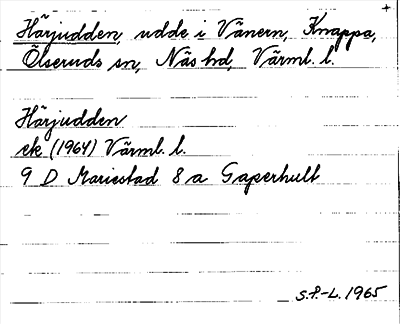 +
Härjudden, udde i Vänern, Knappa,
Ölseruds sn, Näs hd, Värml. l.
Härjudden
ek (1964) Värml. l.
9 D Mariestad 8 a Gaperhult
S.P.-L. 1965